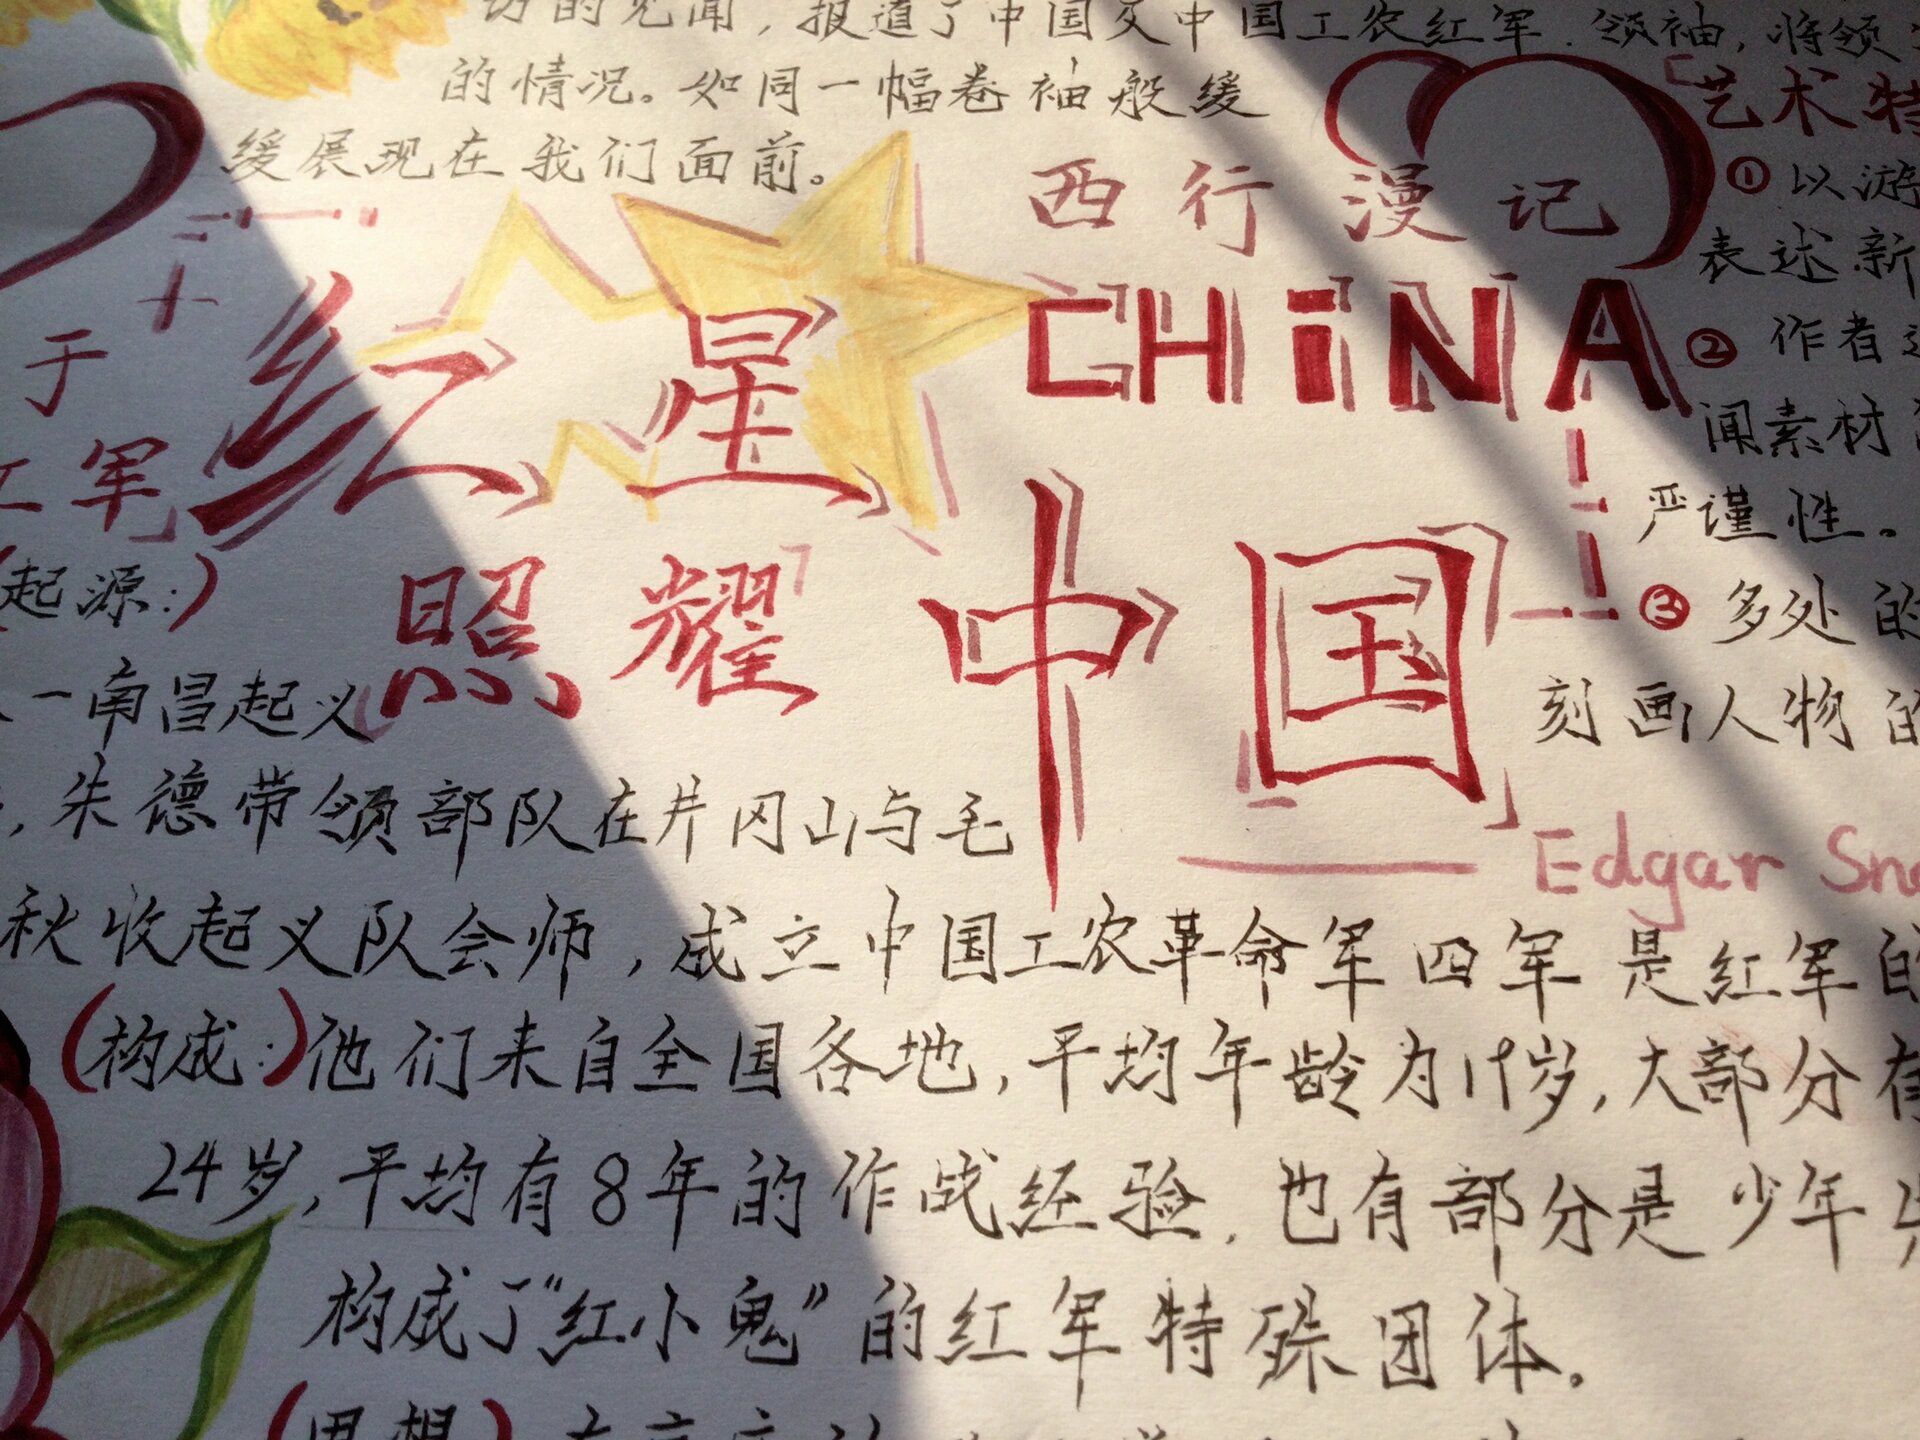 访的见闻，报道了中国及中国工农红军.领袖，将领
的情况。如同一幅卷袖般缓
缓展现在我们面前。
西行漫记
CHiNA
红星
照耀中国
Edgar
艺术特
①以游
表述新
②作者
闻素材
严谨性。
③多处的
刻画人物的
于
军
起源:)
一南昌起义
，朱德带领部队在井冈山与毛
秋收起义队会师，成立中国工农革命军四军是红军的
(构成:)他们来自全国各地，平均年龄为19岁，大部分有
24岁，平均有8年的作战经验，也有部分是少年
构成了"红小鬼"的红军特殊团体。
(思想)